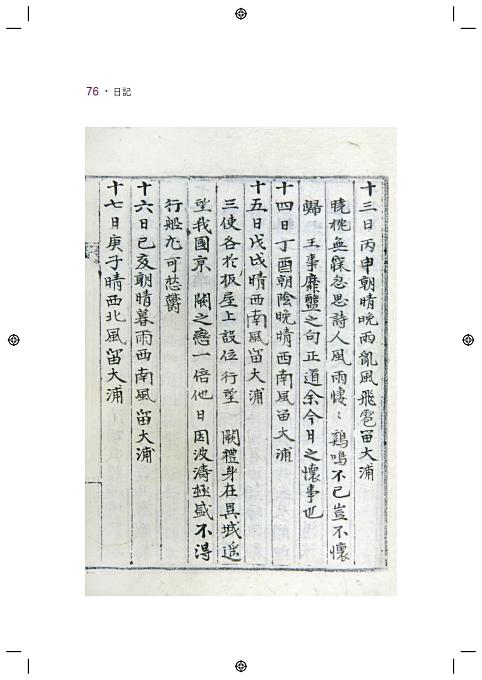 76・日記
十三日丙申朝晴晩雨亂風飛雹留大浦
曉枕無寐忽思詩人風雨悽〻鷄鳴不已豈不懷
歸 王事靡盬之句正道余今日之懷事也
十四日丁酉朝陰晩晴西南風留大浦
十五日戊戌晴西南風留大浦
三使各於板屋上設位行望 闕禮身在異域遥
望我國京 闕之戀一倍他日因波濤極盛不得
行船尤可愁鬱
十六日己亥朝晴暮雨西南風留大浦
十七日庚子晴西北風留大浦